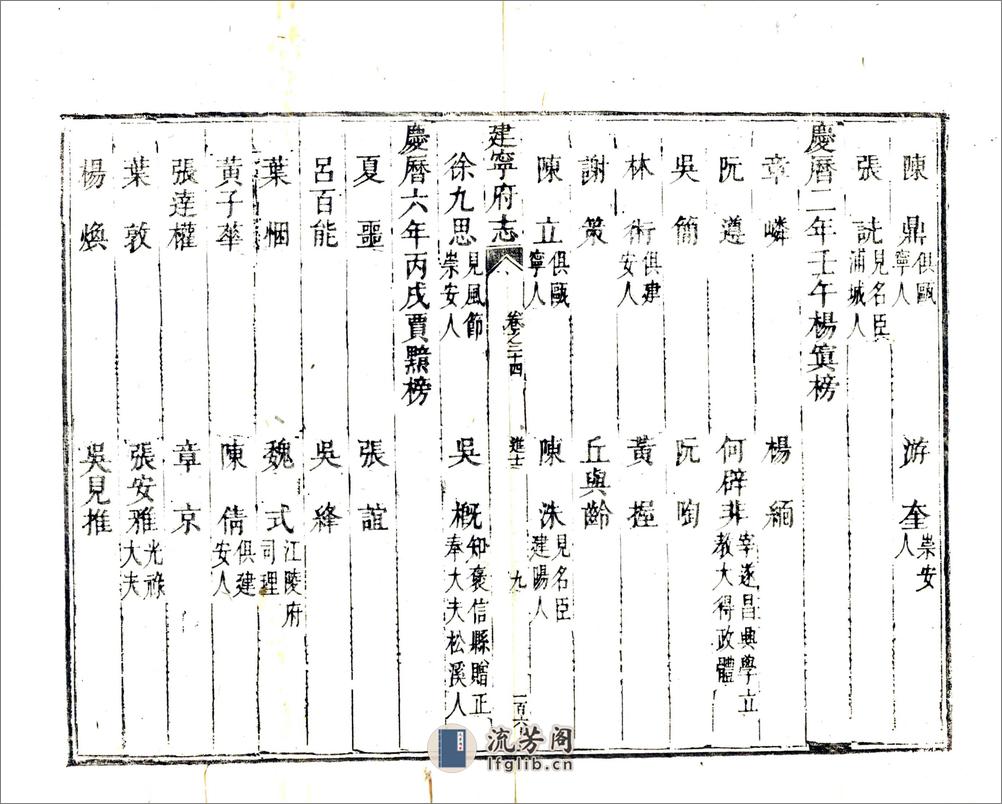 陳鼎 俱甌寧人 游奎 崇安人
張詵 見名臣浦城人
慶曆二年壬午楊寘榜
章嶙 楊緬
阮遵 何辟非 宰遂昌興學立教大得政體
吳簡 阮陶
林術 俱建安人 黃握
謝策 丘與齡
陳立 俱甌寧人 陳洙 見名臣建陽人
建寧府志 卷之三十四 進士 九 一百六
徐九思 見風節崇安人 吳概 知褒信縣贈正奉大夫松溪人
慶曆六年丙戌賈黯榜
夏噩 張誼
呂百能 吳絳
葉悃 魏式 江陵府司理
黃子華 陳倩 俱建安人
張達權 章京
葉敦 張安雅 光祿大夫
楊煥 吳見推
流芳阁
lfglib.cn